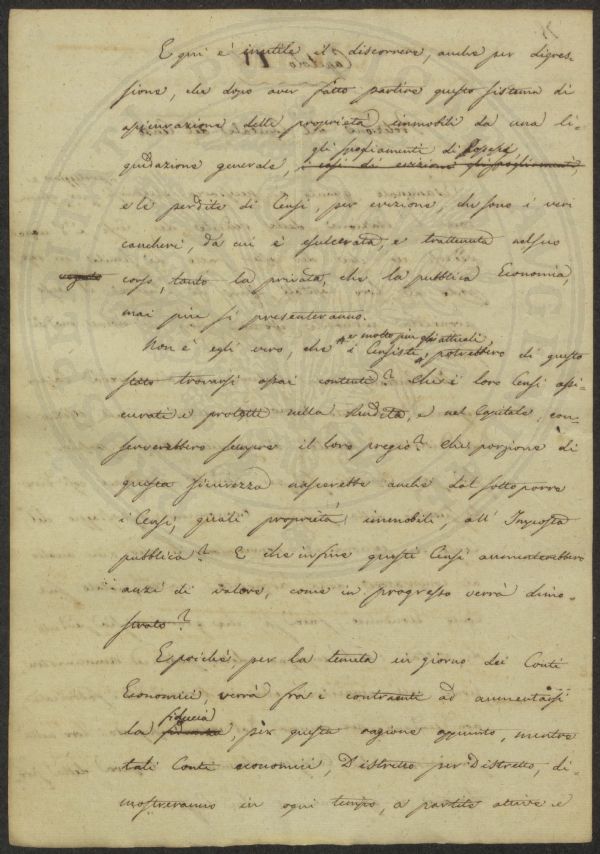 E qui è inutile il discorrere, anche per digres-
sione, che dopo aver fatto partire questo sistema di
assicurazione delle proprietà immobili da una li-
gli spogliamenti di Possessi
quidazione generale, i casi di evizione gli spogliamenti,
e le perdite di Censi, per evizione, che sono i veri
cancheri, da cui è esulcerata, e trattenuta nel suo
corso, tanto la privata, che la pubblica Economia,
mai più si presenteranno.
e molto più gli attuali
Non è egli vero, che i Censisti, potrebbero di questo
stato trovarsi assai contenti? Che i loro Censi assi-
curati e protetti nella rendita, e nel Capitale, con-
serverebbero sempre il loro pregio? Che porzione di
questa sicurezza nascerebbe anche dal sottoporre
i Censi, quali proprietà immobili, all' Imposta
pubblica? E che infine questi Censi aumenterebbero
anzi di valore, come in progresso verrà dimo-
strato?
E poichè per la tenuta in giorno dei Conti
Economici, verrà fra i contraenti ad aumentarsi
fiducia
la, per questa ragione appunto, mentre
tali Conti economici, Distretto per Distretto, di-
mostreranno in ogni tempo, a partite attive e